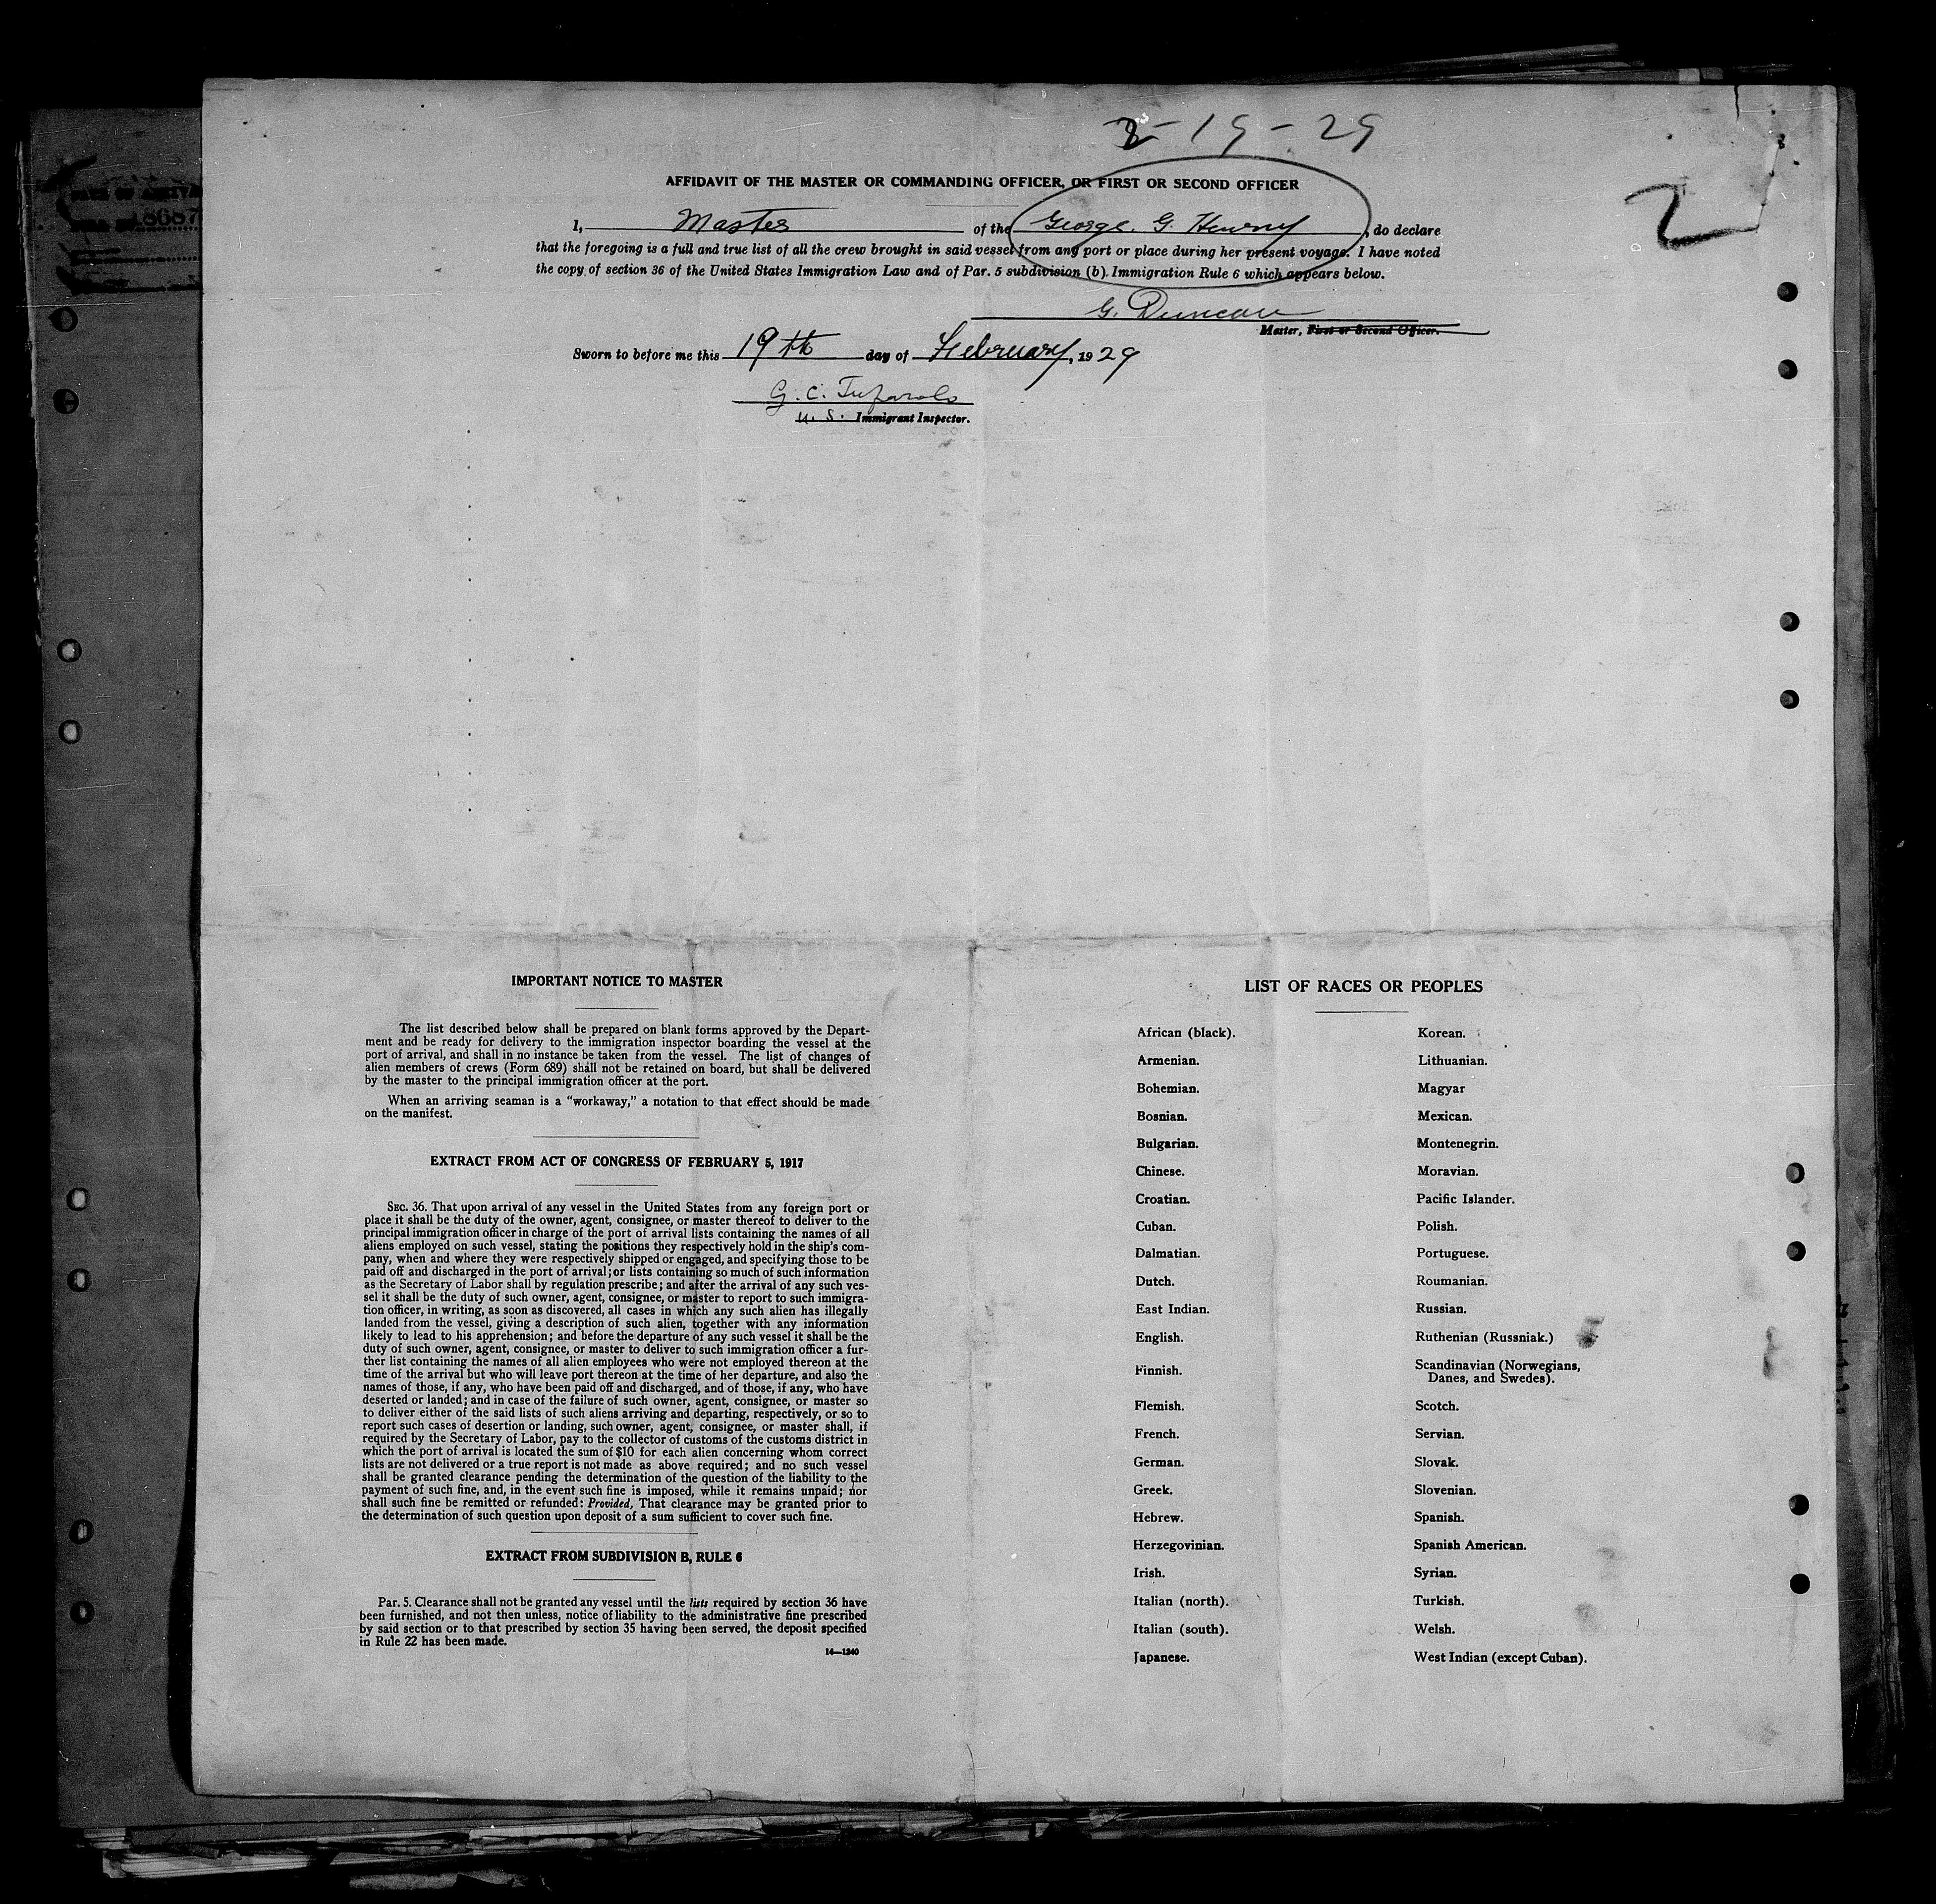 2-19-29
2
AFFIDAVIT OF THE MASTER OR COMMANDING OFFICER, OR FIRST OR SECOND OFFICER
I, Master of the George. G. Henry, do declare
that the foregoing is a full and true list of all the crew brought in said vessel from any port or place during her present voyage. I have noted
the copy of section 36 of the United States Immigration Law and of Par. 5 subdivision (b). Immigration Rule 6 which appears below.
G. Duncan
Master, First or Second Officer.
Sworn to before me this 19th day of February, 1929
G. C.
U. S. Immigrant Inspector.
8687
IMPORTANT NOTICE TO MASTER
The list described below shall be prepared on blank forms approved by the Depart-
ment and be ready for delivery to the immigration inspector boarding the vessel at the
port of arrival, and shall in no instance be taken from the vessel. The list of changes of
alien members of crews (Form 689) shall not be retained on board, but shall be delivered
by the master to the principal immigration officer at the port.
When an arriving seaman is a “workaway,” a notation to that effect should be made
on the manifest.
EXTRACT FROM ACT OF CONGRESS OF FEBRUARY 5, 1917
SEC. 36. That upon arrival of any vessel in the United States from any foreign port or
place it shall be the duty of the owner, agent, consignee, or master thereof to deliver to the
principal immigration officer in charge of the port of arrival lists containing the names of all
aliens employed on such vessel, stating the positions they respectively hold in the ship's com-
pany, when and where they were respectively shipped or engaged, and specifying those to be
paid off and discharged in the port of arrival; or lists containing so much of such information
as the Secretary of Labor shall by regulation prescribe; and after the arrival of any such ves-
sel it shall be the duty of such owner, agent, consignee, or master to report to such immigra-
tion officer, in writing, as soon as discovered, all cases in which any such alien has illegally
landed from the vessel, giving a description of such alien, together with any information
likely to lead to his apprehension; and before the departure of any such vessel it shall be the
duty of such owner, agent, consignee, or master to deliver to such immigration officer a fur-
ther list containing the names of all alien employees who were not employed thereon at the
time of the arrival but who will leave port thereon at the time of her departure, and also the
names of those, if any, who have been paid off and discharged, and of those, if any, who have
deserted or landed; and in case of the failure of such owner, agent, consignee, or master so
to deliver either of the said lists of such aliens arriving and departing, respectively, or so to
report such cases of desertion or landing, such owner, agent, consignee, or master shall, if
required by the Secretary of Labor, pay to the collector of customs of the customs district in
which the port of arrival is located the sum of $10 for each alien concerning whom correct
lists are not delivered or a true report is not made as above required; and no such vessel
shall be granted clearance pending the determination of the question of the liability to the
payment of such fine, and, in the event such fine is imposed, while it remains unpaid; nor
shall such fine be remitted or refunded: Provided, That clearance may be granted prior to
the determination of such question upon deposit of a sum sufficient to cover such fine.
EXTRACT FROM SUBDIVISION B, RULE 6
Par. 5. Clearance shall not be granted any vessel until the lists required by section 36 have
been furnished, and not then unless, notice of liability to the administrative fine prescribed
by said section or to that prescribed by section 35 having been served, the deposit specified
in Rule 22 has been made.
14—1240
LIST OF RACES OR PEOPLES
African (black).
Armenian.
Bohemian.
Bosnian.
Bulgarian.
Chinese.
Croatian.
Cuban.
Dalmatian.
Dutch.
East Indian.
English.
Finnish.
Flemish.
French.
German.
Greek.
Hebrew.
Herzegovinian.
Irish.
Italian (north).
Italian (south).
Japanese.
Korean.
Lithuanian.
Magyar
Mexican.
Montenegrin.
Moravian.
Pacific Islander.
Polish.
Portuguese.
Roumanian.
Russian.
Ruthenian (Russniak.)
Scandinavian (Norwegians,
Danes, and Swedes).
Scotch.
Servian.
Slovak.
Slovenian.
Spanish.
Spanish American.
Syrian.
Turkish.
Welsh.
West Indian (except Cuban).